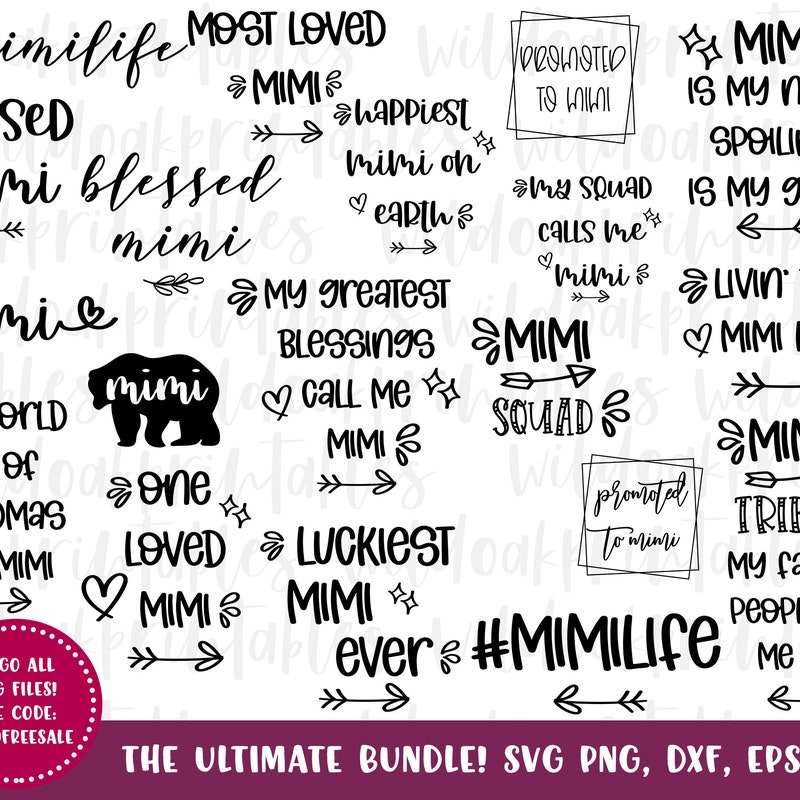 mimilife
MOST LOVED
MIMI
HAPPIEST
MIMI ON
EARTH
PROMOTED
TO MIMI
MIMI
IS MY
SPOILIN
IS MY
blessed
mimi
MY SQUAD
CALLS ME
MIMI
MY GREATEST
BLESSINGS
CALL ME
MIMI
mimi
MIMI
SQUAD
LIVIN'
MIMI
OF
MIMI
ONE
LOVED
MIMI
LUCKIEST
MIMI
EVER
promoted
to mimi
MIMI
MY
ME
#MIMILIFE
GO ALL
FILES!
CODE:
FREESALE
THE ULTIMATE BUNDLE! SVG PNG, DXF, EPS
wildoakprintables